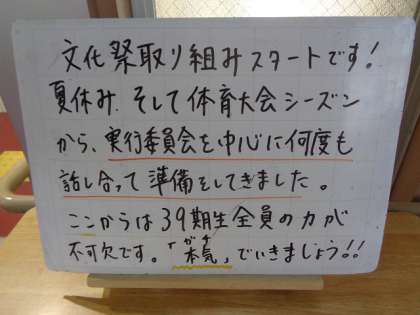 文化祭取り組みスタートです!
夏休み、そして体育大会シーズン
から、実行委員会を中心に何度も
話し合って準備をしてきました。
ここからは39期生全員の力が
不可欠です。「本気」でいきましょう!!
ガチ